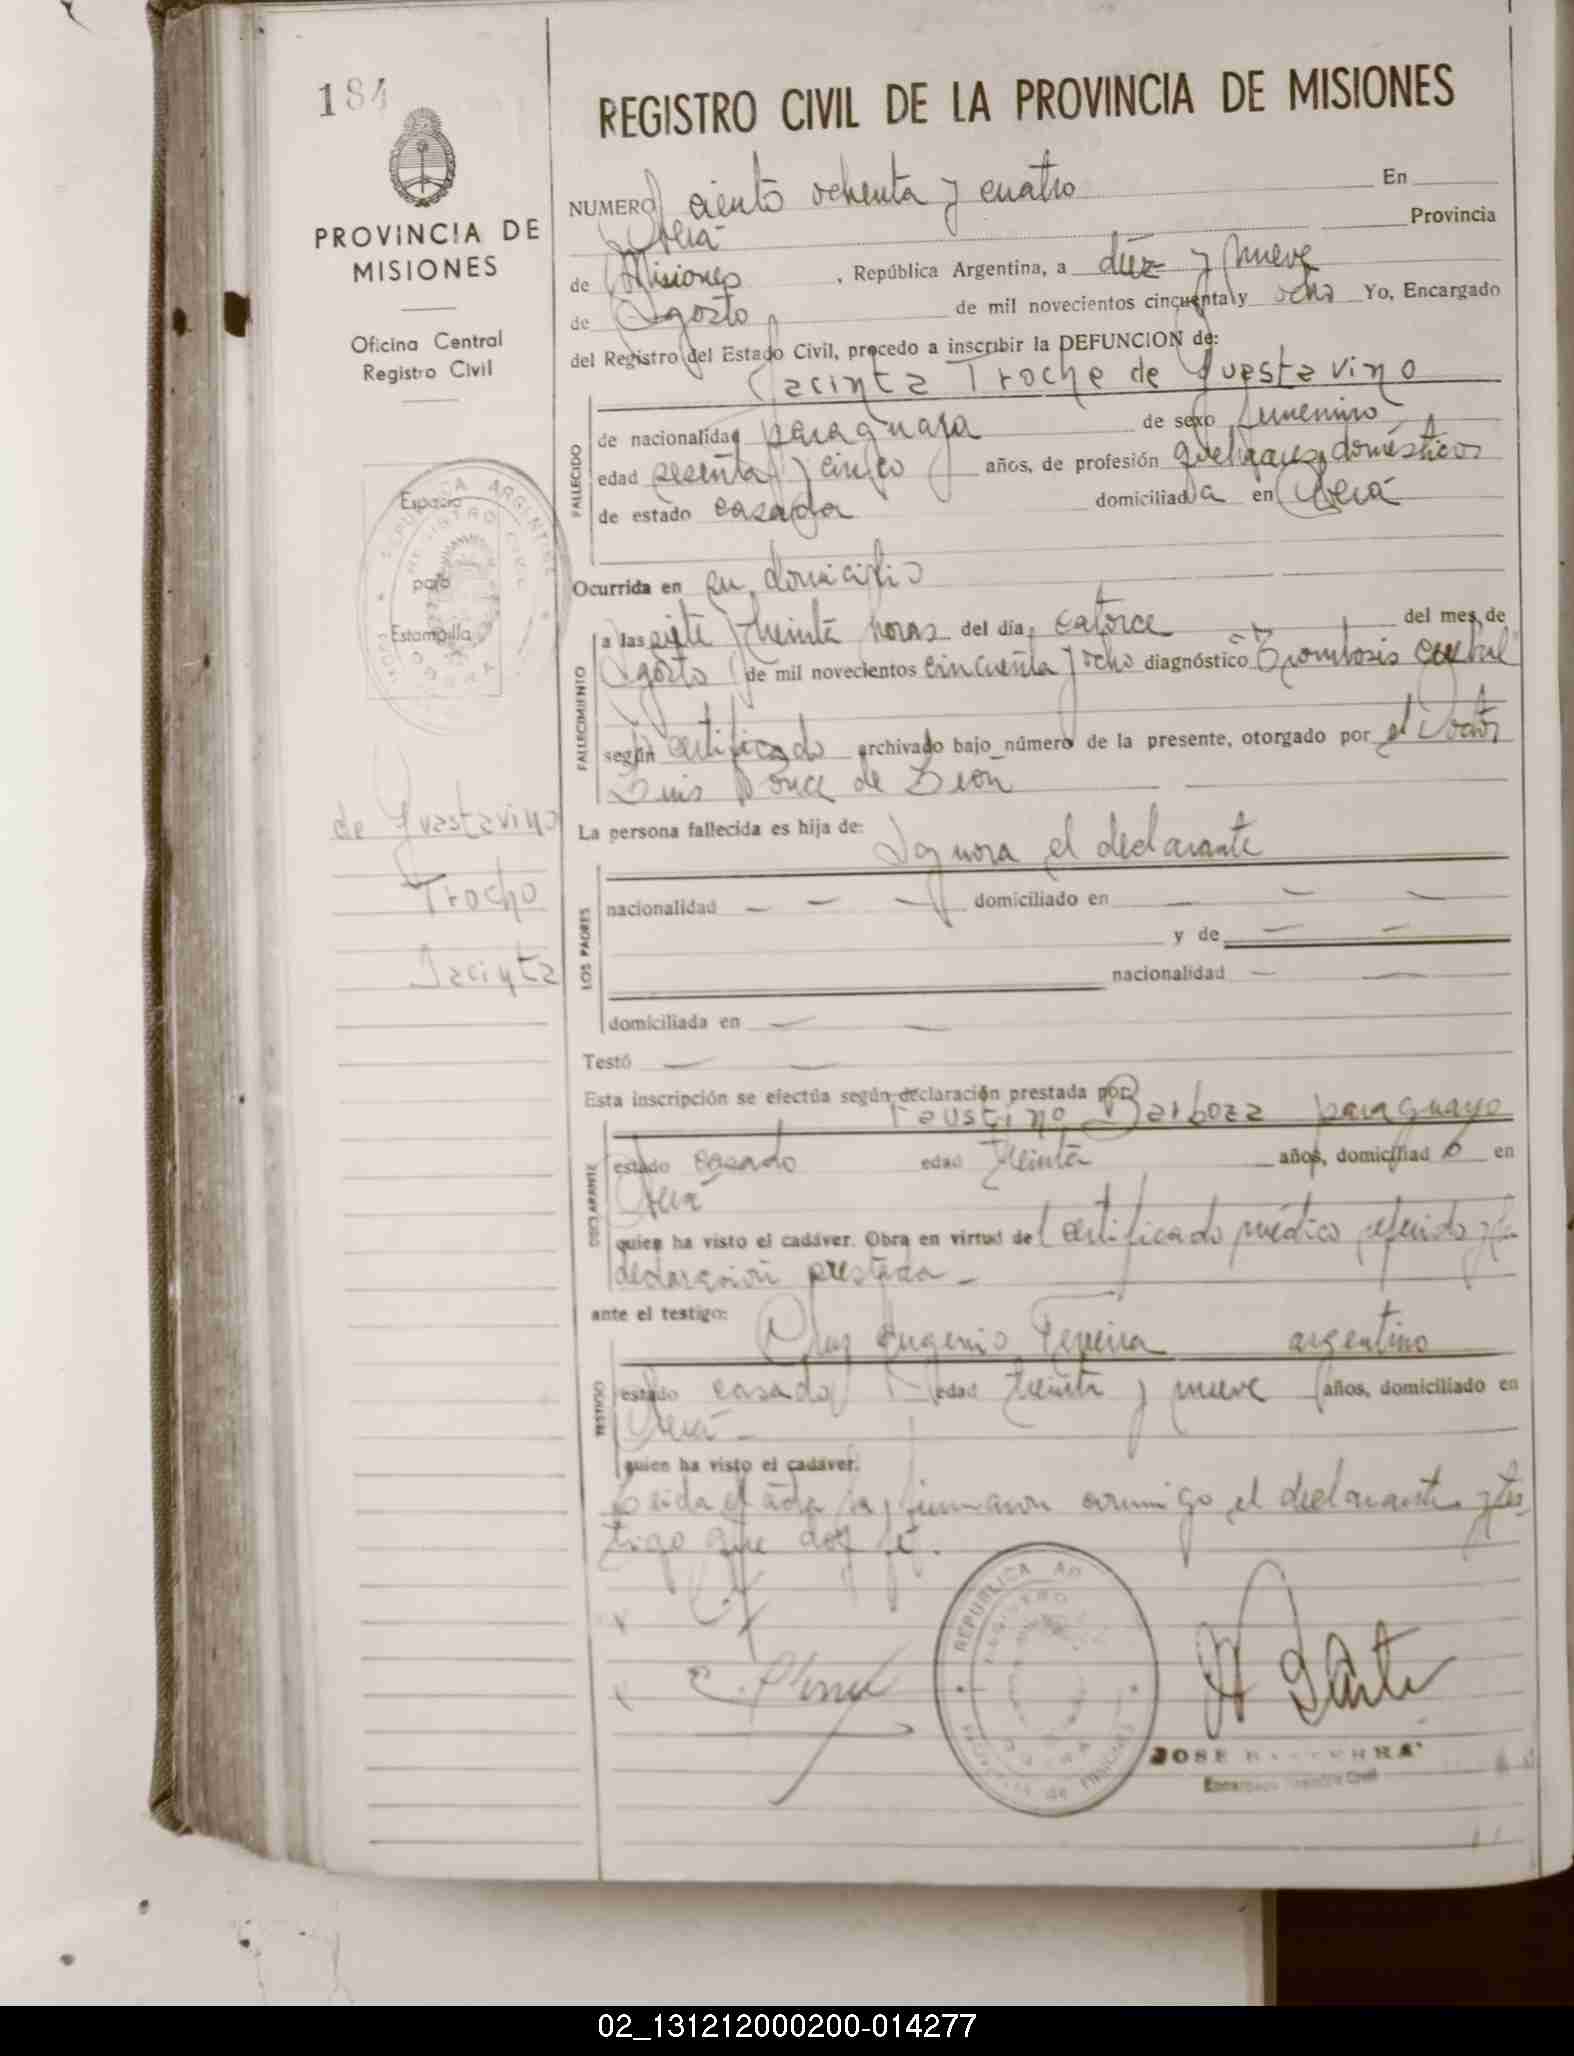 184
REGISTRO CIVIL DE LA PROVINCIA DE MISIONES
PROVINCIA DE
MISIONES
Oficina Central
Registro Civil
Espacio
para
Estampilla
de Guastavino
Troche
Jacinta
NUMERO ciento ochenta y cuatro En
Oberá Provincia
de Misiones, República Argentina, a diez y nueve
de Agosto de mil novecientos cincuenta y ocho Yo, Encargado
del Registro del Estado Civil, procedo a inscribir la DEFUNCION de:
Jacinta Troche de Guastavino
FALLECIDO
de nacionalidad paraguaya de sexo femenino
edad sesenta y cinco años, de profesión quehaceres domésticos
de estado casada domiciliada en Oberá
Ocurrida en su domicilio
FALLECIMIENTO
a las siete y treinta horas del día catorce del mes de
Agosto de mil novecientos cincuenta y ocho diagnóstico Trombosis cerebral
según certificado archivado bajo número de la presente, otorgado por el Doctor
Luis Ponce de León
La persona fallecida es hija de: Ignora el declarante
LOS PADRES
nacionalidad — — — domiciliado en — — —
y de — —
nacionalidad — —
domiciliada en — —
Testó — —
Esta inscripción se efectúa según declaración prestada por:
Faustino Barboza paraguayo
DECLARANTE
estado casado edad treinta años, domiciliado en
Oberá
quien ha visto el cadáver. Obra en virtud del certificado médico referido y la
declaración prestada —
ante el testigo:
Eugenio Pereira argentino
TESTIGO
estado casado edad treinta y nueve años, domiciliado en
Oberá —
quien ha visto el cadáver.
Leida el acta la firmaron conmigo el declarante y tes
tigo que doy fé.
REPUBLICA
REGISTRO
OBERA
JOSE
Encargado Registro Civil
02_131212000200-014277